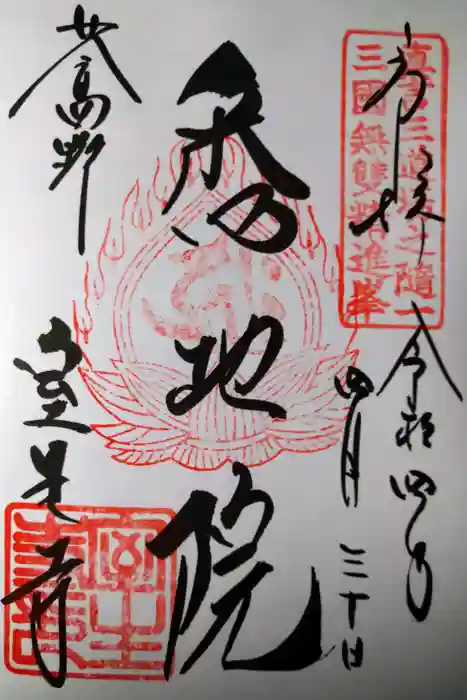 奉拝
真言三道場之隨一
三國無雙精進峯
令和四年
四月三十日
悉地院
女高野
室生寺